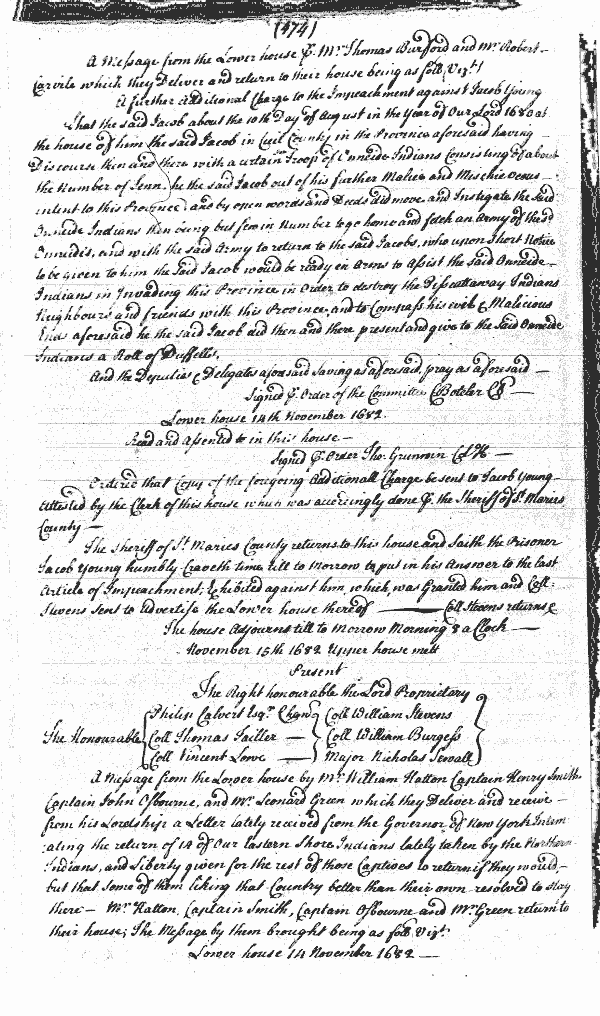 (474)
A Message from the Lower house ꝑ. Mr. Thomas Burford and Mr. Robert
Carvile which they Deliver and return to their house being as foll. Vizt.
A further additional Charge to the Impeachment against Jacob Young
That the said Jacob about the 10th Day of August in the Year of Our Lord 1680 at
the house of him the said Jacob in Cecil County in the Province aforesaid having
Discourse then and there with a certain Troop of Onneide Indians Consisting of about
the Number of Tenn, he the said Jacob out of his further Malice and Mischievous
intent to this Province, and by open words and Deeds did move and Instigate the said
Onneide Indians then being but few in Number to go home and fetch an Army of the sd
Onneides, and with the said Army to return to the said Jacobs, who upon Short Notice
to be given to him the said Jacob would be ready in Arms to Assist the said Onneide
Indians in Invading this Province in Order to destroy the Pisscattaway Indians
Neighbours and friends with this Province, and to Compass his evil & Malicious
Ends aforesaid he the said Jacob did then and there present and give to the said Onneide
Indians a Roll of Duffells,
And the Deputies & Delegates aforesaid saving as aforesaid, pray as aforesaid
Signed ꝑ. Order of the Committee C Boteler Cl
Lower house 14th November 1682.
Read and assented to in this house
Signed ꝑ. Order Tho. Grunwin Cl
Ordered that Copy of the foregoing Additionall Charge be sent to Jacob Young
Attested by the Clerk of this house which was accordingly done ꝑ. the Sheriff of St. Maries
County
The Sheriff of St. Maries County returns to this house and saith the Prisoner
Jacob Young humbly Craveth time till to Morrow to put in his Answer to the last
Article of Impeachment Exhibited against him, which, was Granted him and Coll.
Stevens sent to Advertise the Lower house thereof Coll Stevens returns &
The house Adjourns till to Morrow Morning 8 a Clock
November 15th 1682 Upper house mett
Present
The Right honourable the Lord Proprietary
Philip Calvert Esqr. Chanr. Coll William Stevens
The Honourable Coll Thomas Tailler Coll William Burgess
Coll Vincent Lowe Major Nicholas Sewall
A Message from the Lower house by Mr. William Hatton Captain Henry Smith
Captain John Osbourne, and Mr. Leonard Green which they Deliver and receive
from his Lordship a Letter lately received from the Governor of New York Intim
ating the return of 14 of Our Eastern Shore Indians lately taken by the Northern
Indians, and Liberty given for the rest of those Captives to return if they would
but that some of them liking that Country better than their own resolved to stay
there Mr. Hatton, Captain Smith, Captain Osbourne and Mr. Green return to
their house; The Message by them brought being as foll. Vizt.
Lower house 14 November 1682